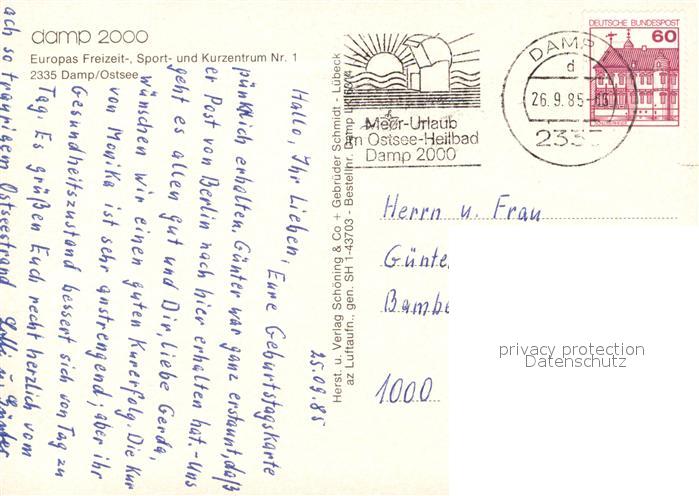 damp 2000
Europas Freizeit-, Sport- und Kurzentrum Nr. 1
2335 Damp/Ostsee
Hallo, Ihr Lieben,
25.09.85
Eure Geburtstagskarte
pünktlich erhalten. Günter war ganz erstaunt, daß
er Post von Berlin nach hier erhalten hat. - Uns
geht es allen gut und Dir, liebe Gerda,
wünschen wir einen guten Kurerfolg. Die Kur
von Monika ist sehr anstrengend; aber ihr
Gesundheitszustand bessert sich von Tag zu
Tag. Es grüßen Euch recht herzlich vom
ach so traurigem Ostseestrand u. Günter
Herst. u. Verlag Schöning & Co + Gebrüder Schmidt - Lübeck
az Luftaufn., gen. SH 1-43703 - Bestellnr. Damp
Meer-Urlaub
im Ostsee-Heilbad
Damp 2000
DAMP
d
26.9.85
2335
DEUTSCHE BUNDESPOST
60
Herrn u. Frau
Günte
Bambe
1000
privacy protection
Datenschutz